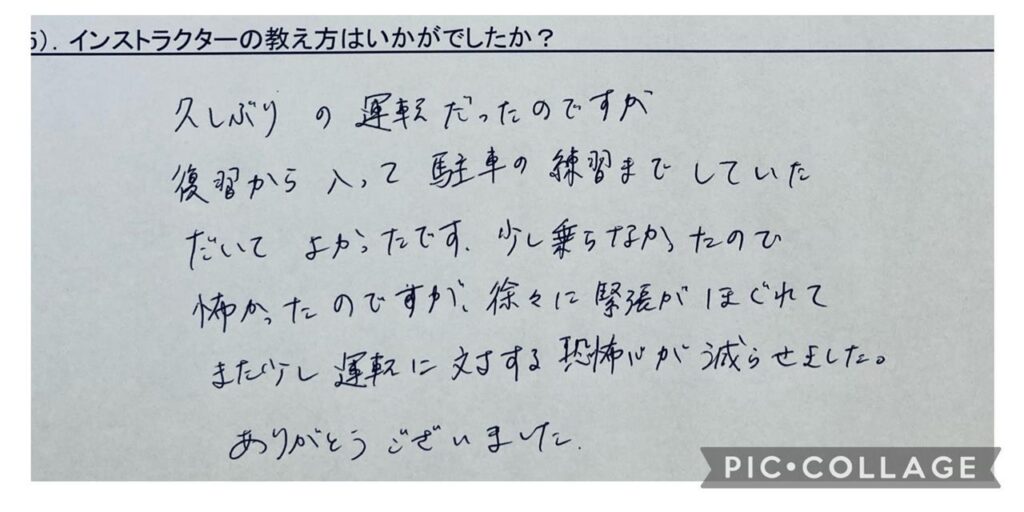 5). インストラクターの教え方はいかがでしたか?
久しぶりの運転だったのですが
復習から入って駐車の練習までしていた
だいてよかったです。少し乗らなかったので
怖かったのですが、徐々に緊張がほぐれて
また少し運転に対する恐怖心が減らせました。
ありがとうございました.
PIC•COLLAGE